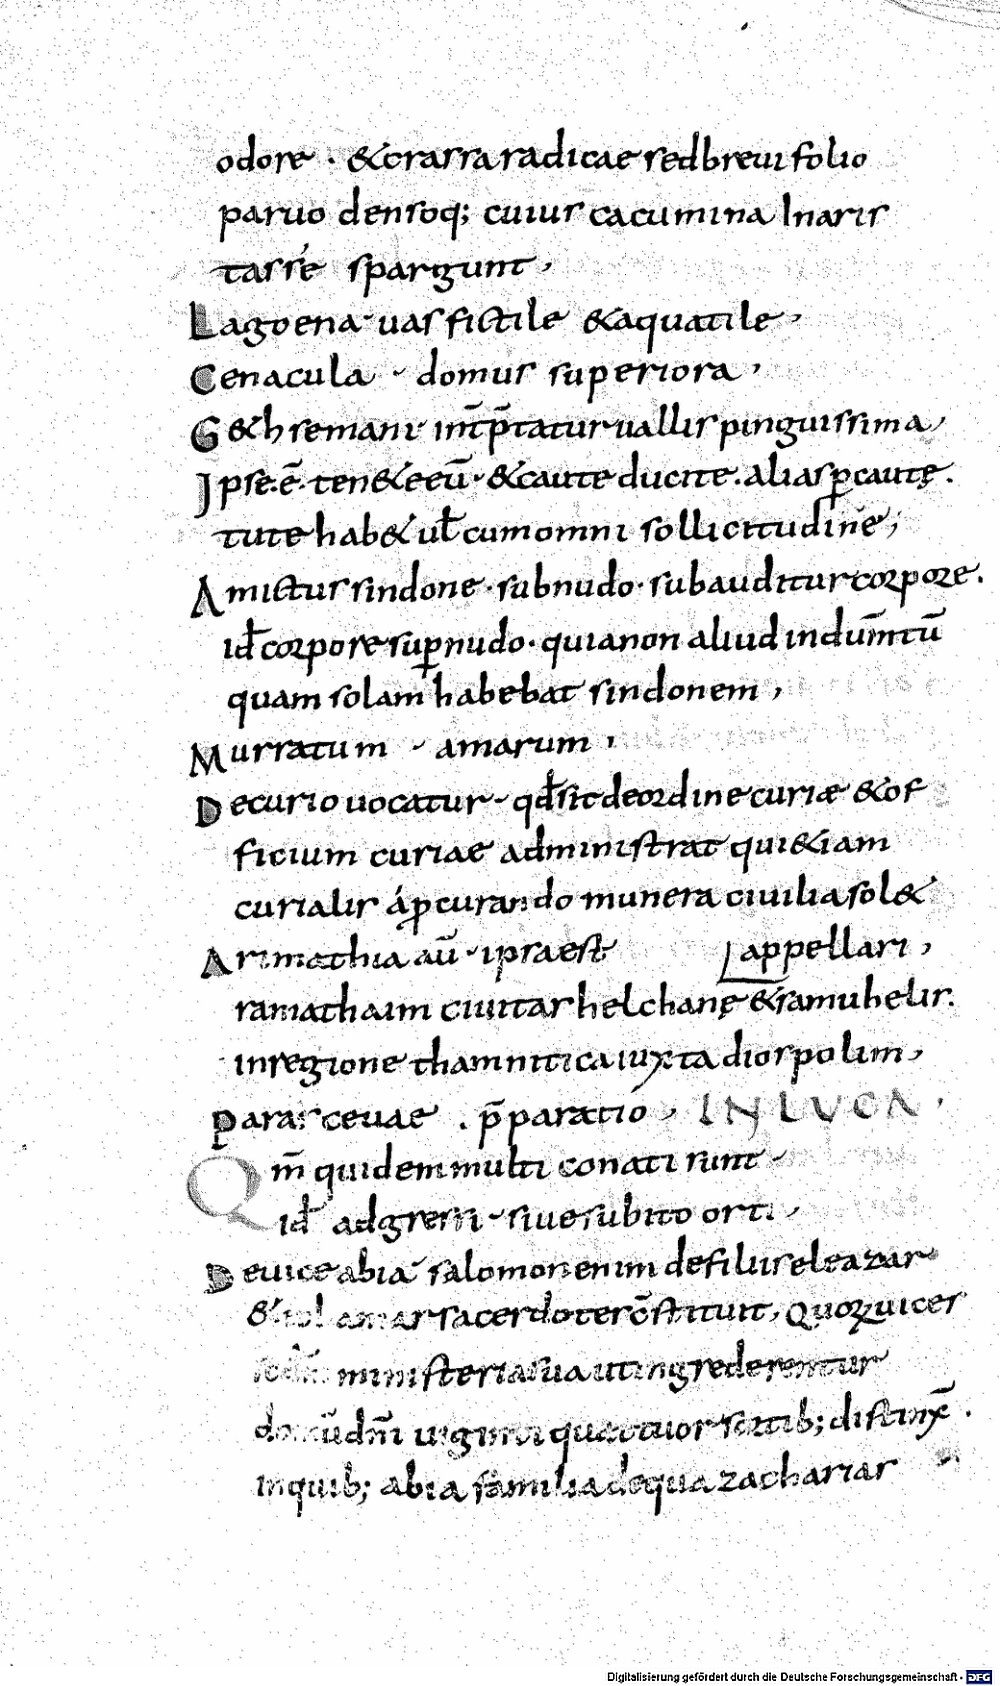 odore · & crassa radicae sed breui folio
paruo densoq; cuius cacumina Inaris
tasse spargunt,
Lagoena uas fictile & aquatile,
Cenacula · domus superiora,
G&hsemani int̄p̄tatur uallis pinguissima,
Ipse·ē· ten&e eū · & caute ducite. alias p̲cautę.
tute hab& ul̄ cum omni sollicitudine,
Amictus sindone · sub nudo · subauditur corpore.
id̄ corpore sup̲ nudo · quia non aliud indum̄tū
quam solam habebat sindonem,
Murratum · amarum,
Decurio uocatur · qd̄ sit de ordine curiæ & of
ficium curiae administrat qui &iam
curialis a p̲curando munera ciuilia sol&
Arimathia aū · ipsa est appellari,
ramathaim ciuitas helchanę & samuhelis.
in regione thamnitica iuxta diospolim,
Parasceuae . p̄paratio, IN LUCA,
Qm̄ quidem multi conati sunt
id̄ adgressi · siue subito orti,
De uice abia salomon enim de filiis eleazar
& amar sacerdotes c̄stituit, Quoꝝ uices
ministeria sua ut ingrederentur
dn̄i uiginti quattuor sortib; distinx̄.
in quib; abia familia de qua zacharias
Digitalisierung gefördert durch die Deutsche Forschungsgemeinschaft - DFG